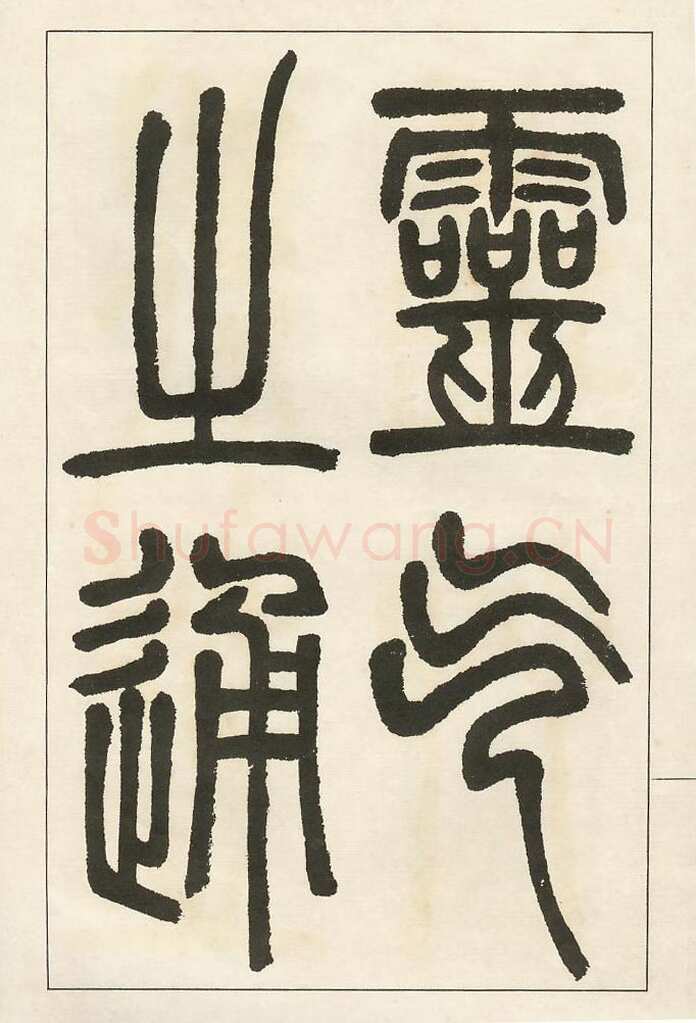 靈气
之通
Shufawang.CN